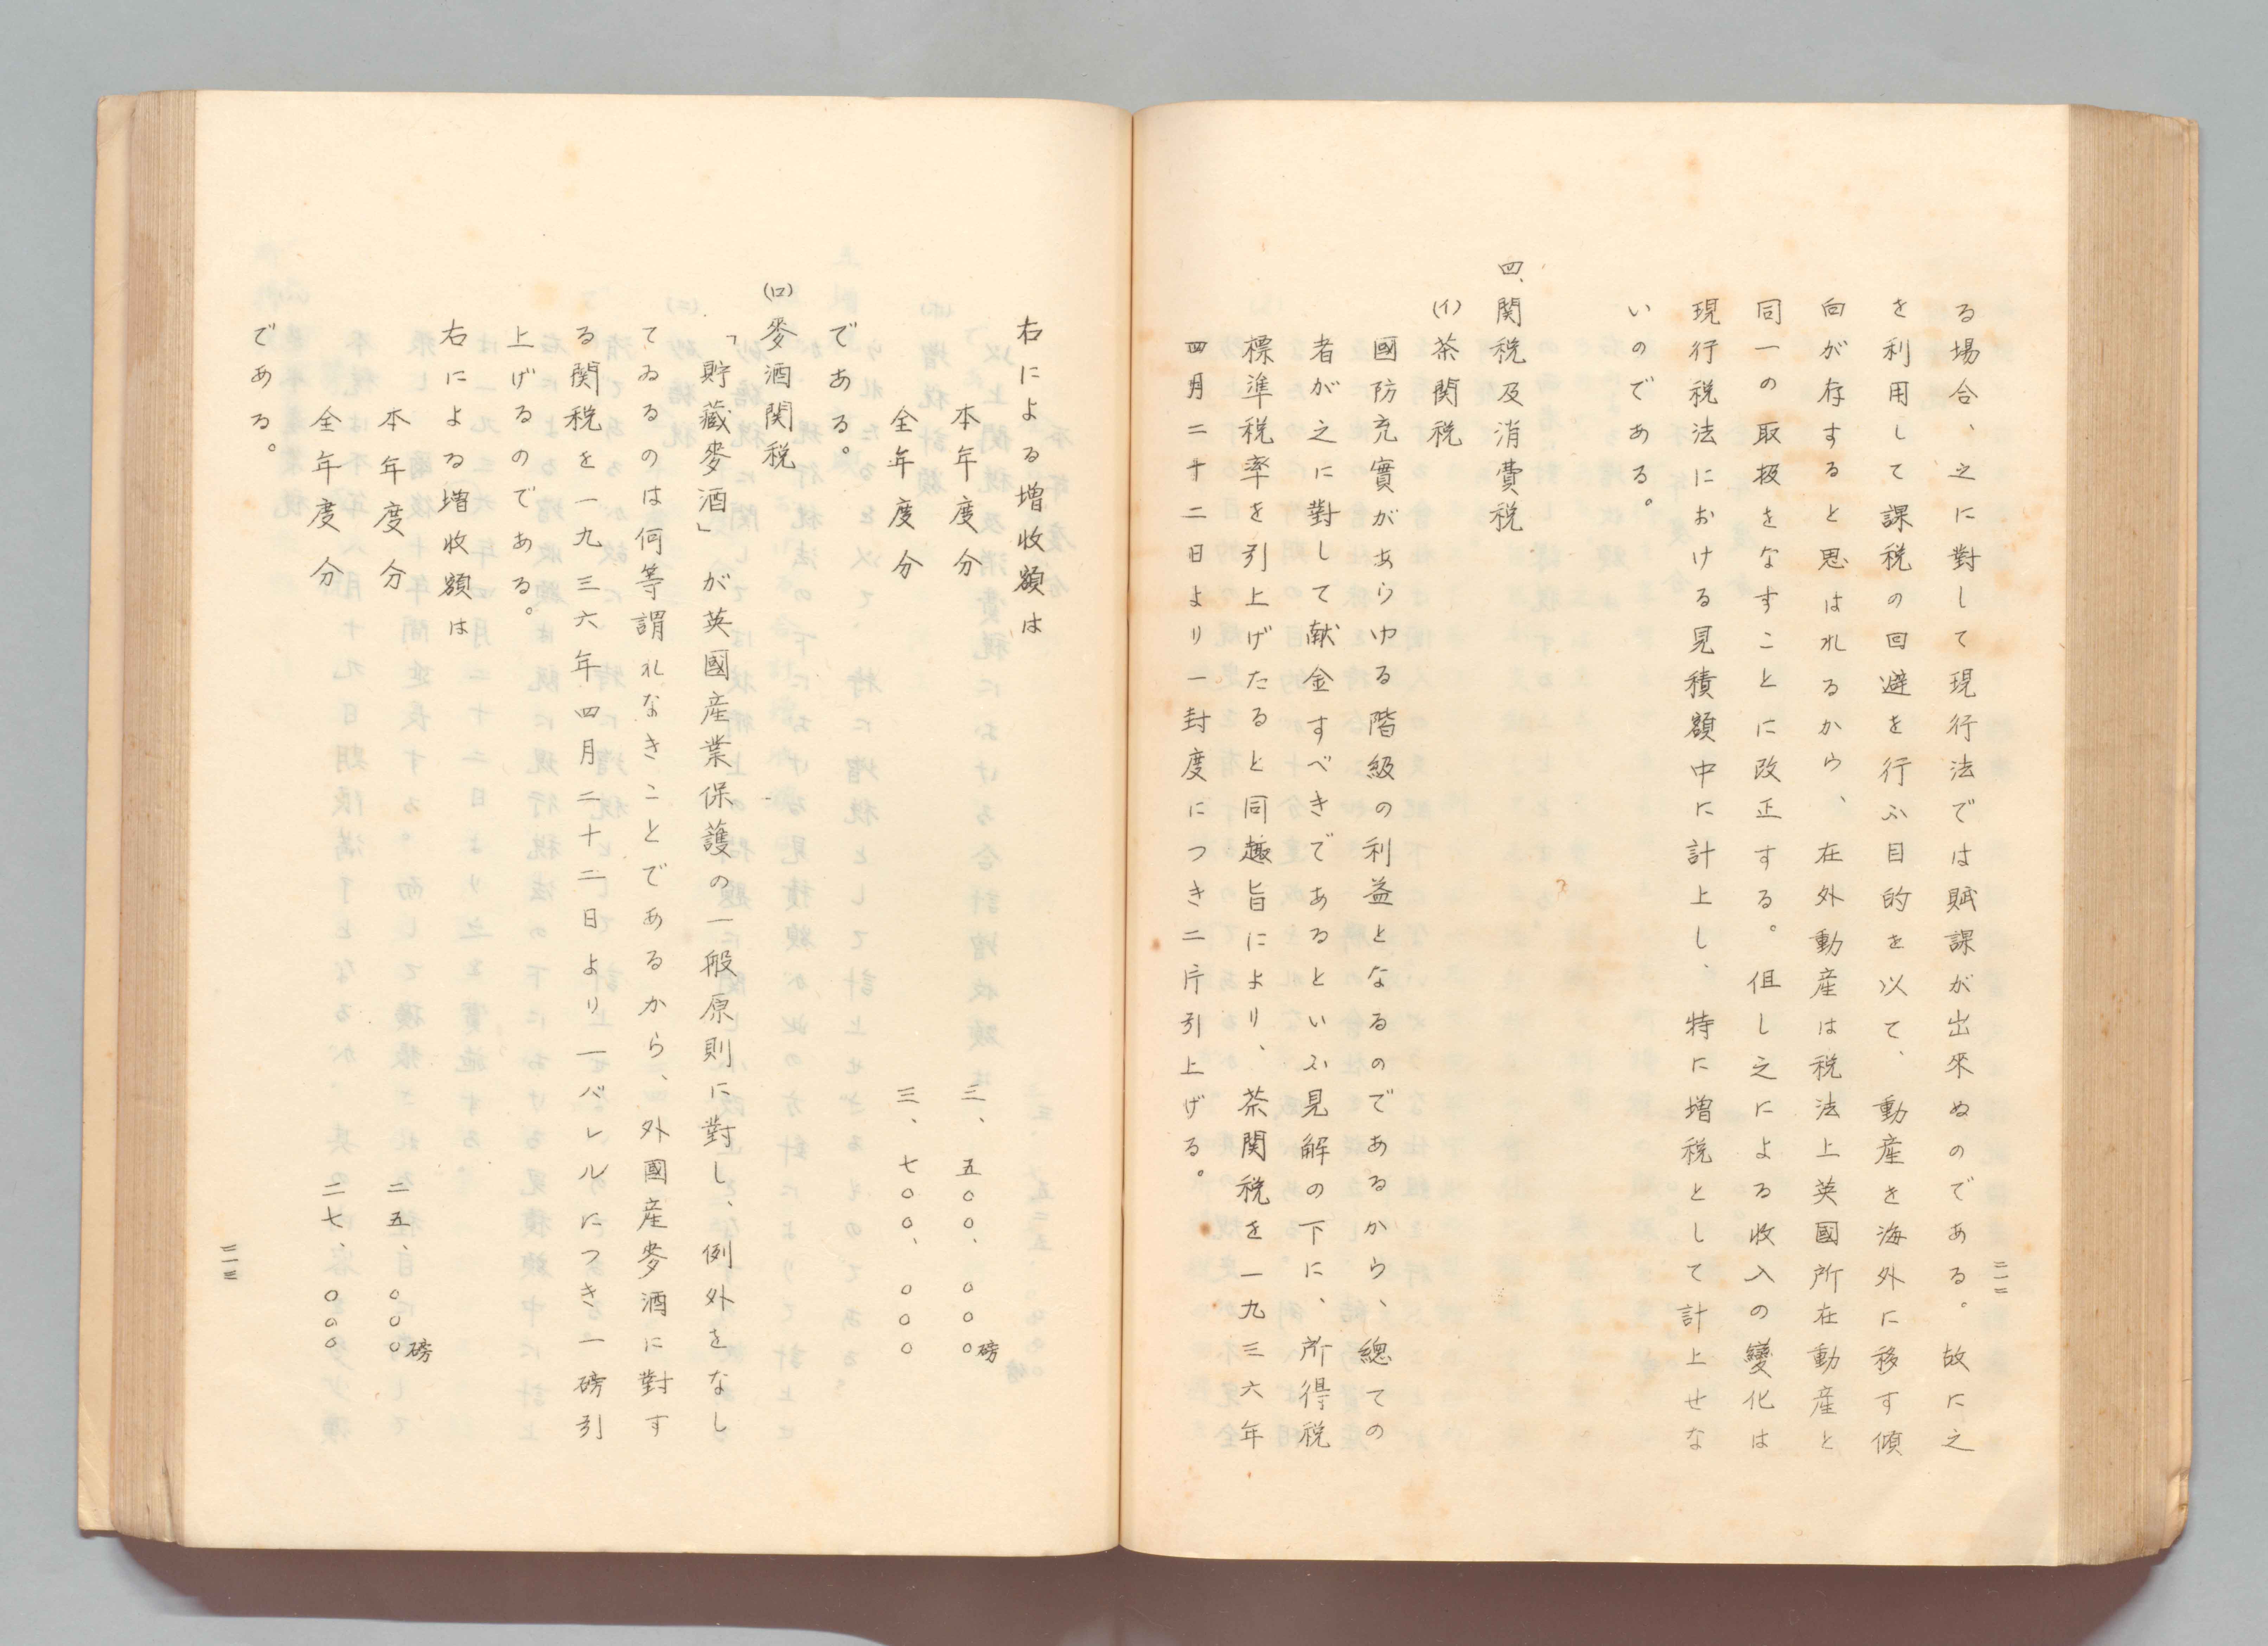 る場合、之に對して現行法では賦課が出來ぬのである。故に之
を利用して課税の回避を行ふ目的を以て、動産を海外に移す傾
向が存すると思はれるから、在外動産は税法上英國所在動産と
同一の取扱をなすことに改正する。但し之による收入の變化は
現行税法における見積額中に計上し、特に増税として計上せな
いのである。
四、関税及消費税
(イ)茶関税
國防充實があらゆる階級の利益となるのであるから、總ての
者が之に對して献金すべきであるといふ見解の下に、所得税
標準税率を引上げたると同趣旨により、茶関税を一九三六年
四月二十二日より一封度につき二片引上げる。
二一二
右による増收額は
本年度分 三、五〇〇、〇〇〇磅
全年度分 三、七〇〇、〇〇〇
である。
(ロ)麥酒関税
「貯藏麥酒」が英國産業保護の一般原則に對し、例外をなし
てゐるのは何等謂れなきことであるから、外國産麥酒に對す
る関税を一九三六年四月二十二日より一バレルにつき一磅引
上げるのである。
右による増收額は
本年度分 二五、〇〇〇磅
全年度分 二七、〇〇〇
である。
二一三